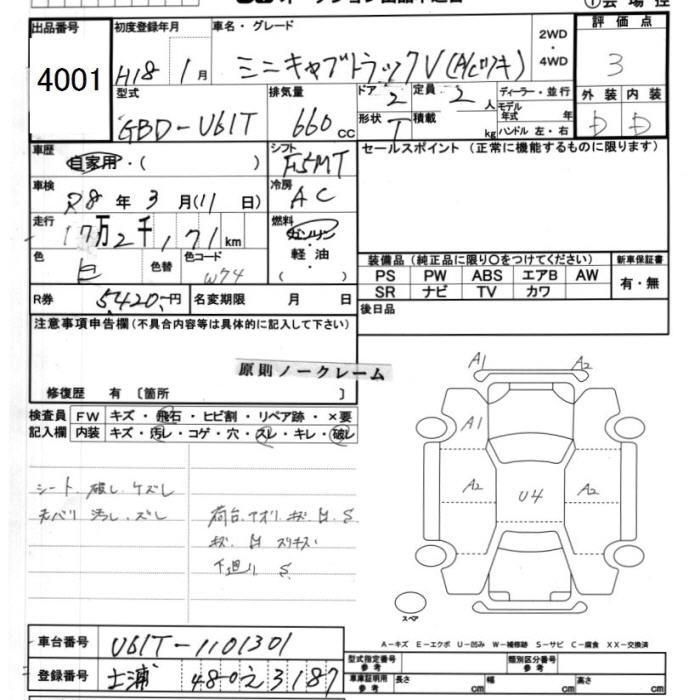 出品番号 初度登録年月 車名・グレード 2WD・4WD 評価点
4001 H18 1月 ミニキャブトラックV 3
型式 排気量 ドア 2 定員 2 人 ディーラー・並行 外装 内装
GBD-U61T 660 cc 形状 T 積載 kg モデル年式 年 D D
ハンドル 左・右
車歴 シフト セールスポイント (正常に機能するものに限ります)
自家用・( ) F5MT
車検 冷房
R8年 3月(11日) AC
走行 燃料
17万2千171km ガソリン・軽油・( )
色 色替 色コード
白 W74
装備品 (純正品に限り〇をつけてください) 新車保証書
PS PW ABS エアB AW 有・無
SR ナビ TV カワ
R券 5,420円 名変期限 月 日 後日品
注意事項申告欄 (不具合内容等は具体的に記入して下さい)
原則ノークレーム
修復歴 有 [箇所 ]
検査員 FW キズ・飛石・ヒビ割・リペア跡・×要
記入欄 内装 キズ・汚レ・コゲ・穴・スレ・キレ・破レ
A1 A2
A1
A2 U4 A2
シート 破レ.
汚レ.
荷台
下廻り S
スペア
A-キズ E-エクボ U-凹み W-補修跡 S-サビ C-腐食 XX-交換済
車台番号 U61T-1101301
登録番号 土浦 480 え 3187
型式指定番号 参考 類別区分番号 参考
車庫証明用 参考 長さ cm 幅 cm 高さ cm